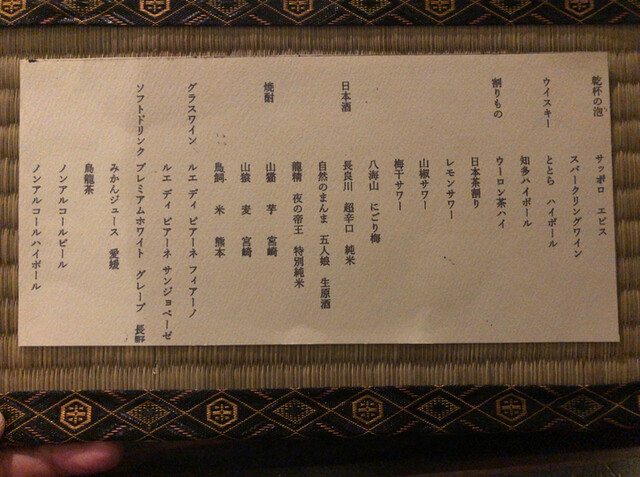 乾杯の泡 サッポロ ヱビス
スパークリングワイン
ウイスキー ととら ハイボール
知多ハイボール
割りもの ウーロン茶ハイ
日本茶割り
レモンサワー
山椒サワー
梅干サワー
日本酒 八海山 にごり梅
長良川 超辛口 純米
自然のまんま 五人娘 生原酒
龍精 夜の帝王 特別純米
焼酎 山猫 芋 宮崎
山猿 麦 宮崎
鳥飼 米 熊本
グラスワイン ルエ ディ ピアーネ フィアーノ
ルエ ディ ピアーネ サンジョベーゼ
ソフトドリンク プレミアムホワイト グレープ 長野
みかんジュース 愛媛
烏龍茶
ノンアルコールビール
ノンアルコールハイボール